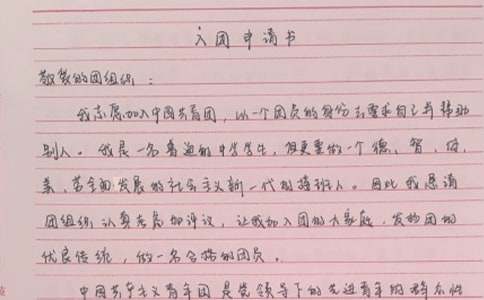 入团申请书
敬爱的团组织：
我志愿加入中国共青团，以一个团员的身份去要求自己与帮助
别人。我是一名普通的中学学生，但更要做一个德，智，体，
美，劳全面发展的社会主义新一代的接班人。因此我恳请
团组织认真考虑加评议，让我加入团的大家庭，发的团的
优良传统，做一名合格的团员。
中国共产主义青年团是党领导下的先进青年的群众性